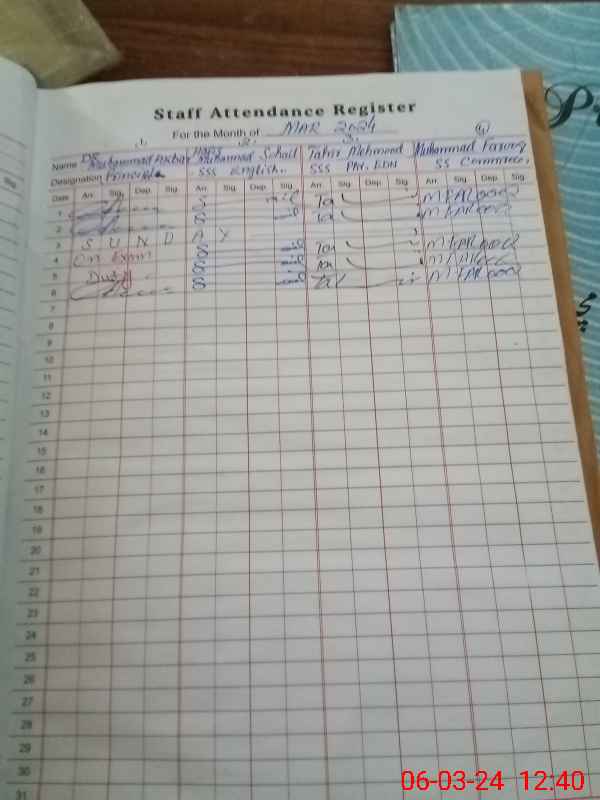 Staff Attendance Register
For the Month of MAR 2024
1. 2. 3. 4
Name Dr Muhammad Akbar Muhammad Sohail Tahir Mehmood Muhammad Farooq
Designation Principal SSS English. SSS PHY. EDN SS Commerce,
Date Arr. Sig. Dep. Sig. Arr. Sig. Dep. Sig. Arr. Sig. Dep. Sig. Arr. Sig. Dep. Sig.
1 S Ta MFAROOQ
2 S Ta MFAROOQ
3 S U N D A Y
4 On Exam S Ta MFAROOQ
5 Duty S MFAROOQ
6 S Ta MFAROOQ
7
8
9
10
11
12
13
14
15
16
17
18
19
20
21
22
23
24
25
26
27
28
29
30
31
06-03-24 12:40